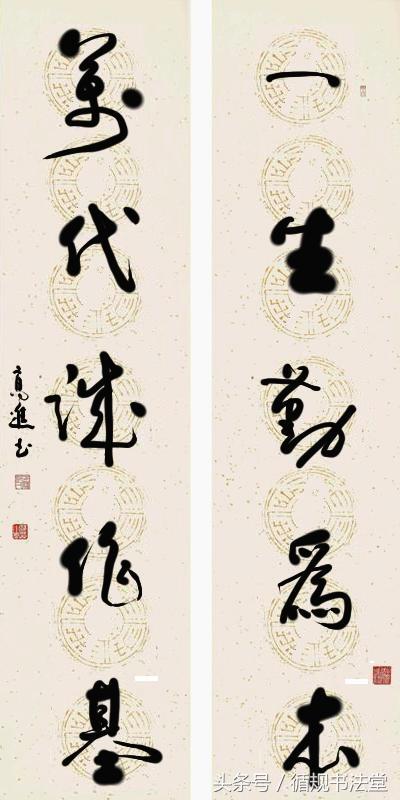 一生勤為本
萬代誠作基
高進书
头条号 / 循规书法堂